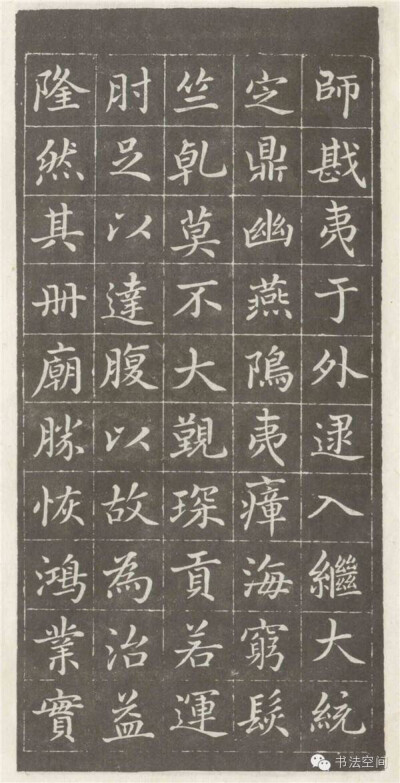 師戡夷于外逮入繼大統
定鼎幽燕隝夷瘴海窮髮
竺乹莫不大覲琛貢若運
肘足以達腹以故為治益
隆然其冊廟勝恢鴻業實
书法空间